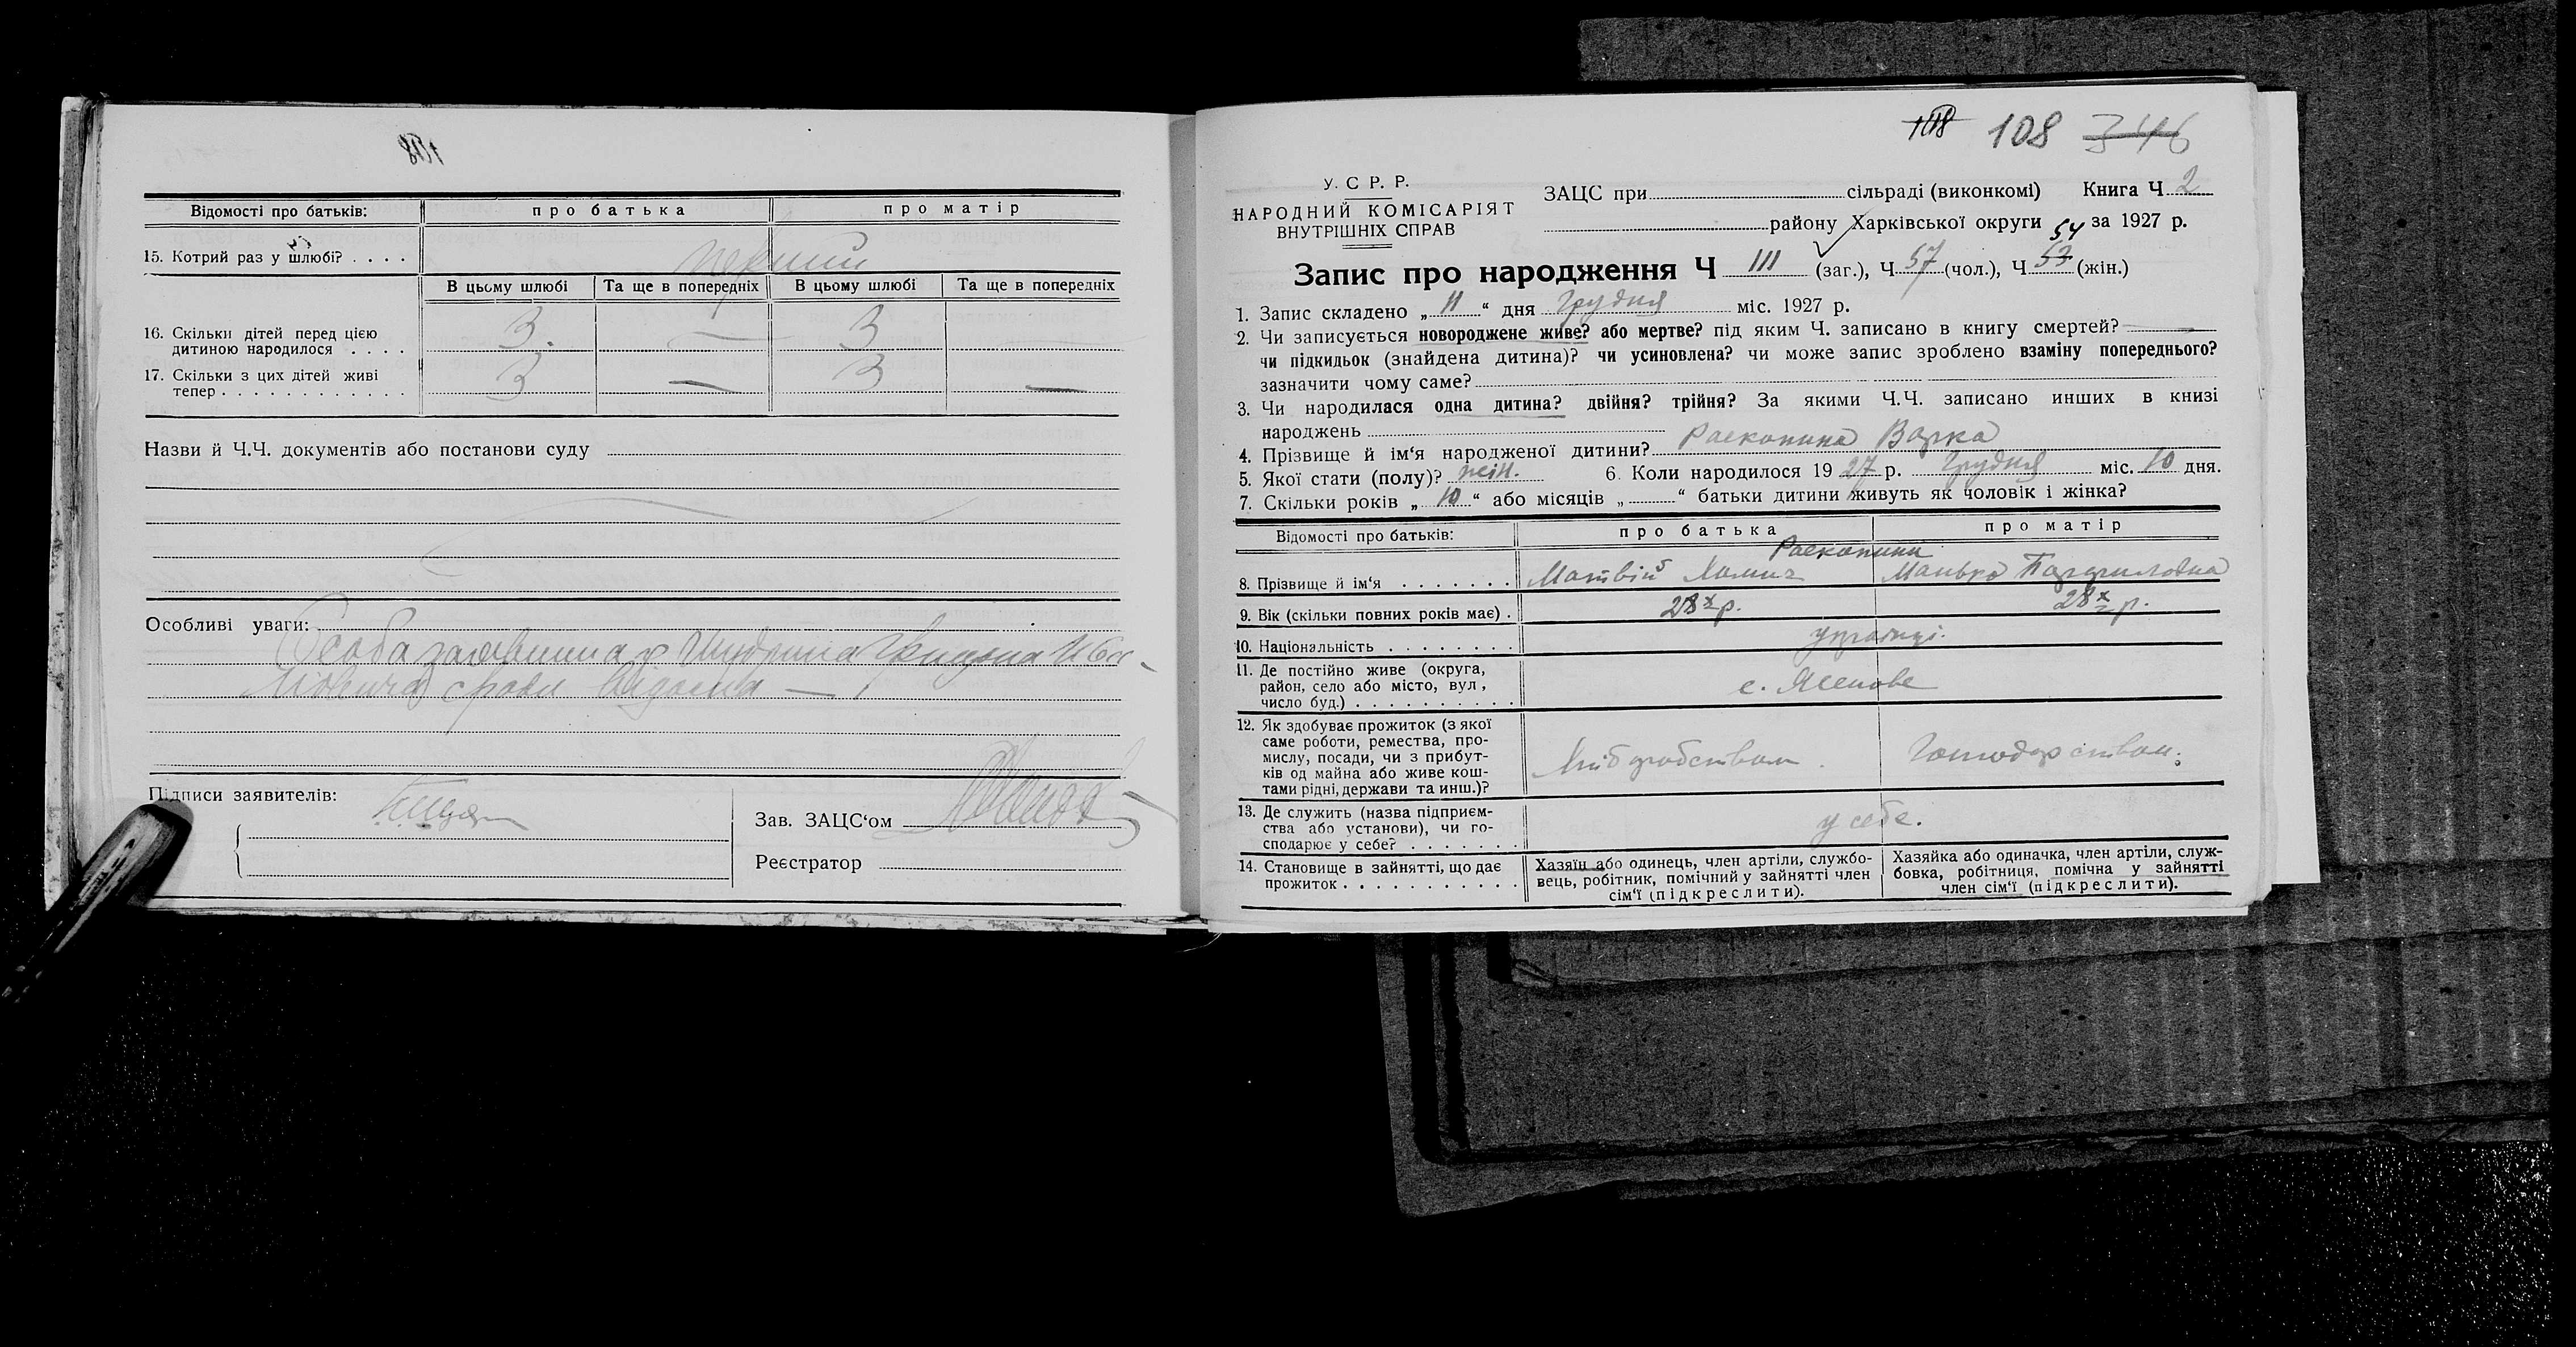 108
Відомості про батьків: про батька про матір
15. Котрий раз у шлюбі? . . . . перший
В цьому шлюбі Та ще в попередніх В цьому шлюбі Та ще в попередніх
16. Скільки дітей перед цією
дитиною народилося . . . . 3. — 3
17. Скільки з цих дітей живі
тепер . . . . . . . . . . . . 3 — 3 —
Назви й Ч.Ч. документів або постанови суду
Особливі уваги:
Особа
Підписи заявителів:
Зав. ЗАЦС‘ом
Реєстратор
108 108 346
У. С Р. Р.
НАРОДНИЙ КОМІСАРІЯТ
ВНУТРІШНІХ СПРАВ
ЗАЦС при сільраді (виконкомі) Книга Ч 2
району Харківської округи за 1927 р.
54
Запис про народження Ч 111 (заг.), Ч 57 (чол.), Ч 53 (жін.)
1. Запис складено „ 11 “ дня Грудня міс. 1927 р.
2. Чи записується новороджене живе? або мертве? під яким Ч. записано в книгу смертей? —
чи підкидьок (знайдена дитина)? чи усиновлена? чи може запис зроблено взаміну попереднього?
зазначити чому саме?
3. Чи народилася одна дитина? двійня? трійня? За якими Ч.Ч. записано инших в книзі
народжень
4. Прізвище й ім‘я народженої дитини? Раскопина Варка
5. Якої стати (полу)? жін. 6. Коли народилося 19 27 р. Грудня міс. 10 дня.
7. Скільки років „ 10 “ або місяців „ “ батьки дитини живуть як чоловік і жінка?
Відомості про батьків: про батька про матір
Раскопини
8. Прізвище й ім‘я . . . . . . . Матвій Хомич Манька
9. Вік (скільки повних років має) . 28 р. 28 р.
10. Національність . . . . . . . . українці.
11. Де постійно живе (округа,
район, село або місто, вул ,
число буд.) . . . . . . . . . . с. Ясенове
12. Як здобуває прожиток (з якої
саме роботи, ремества, про-
мислу, посади, чи з прибут-
ків од майна або живе кош-
тами рідні, держави та инш.)? Хліборобством. Господарством.
13. Де служить (назва підприєм-
ства або установи), чи го-
сподарює у себе? . . . . . . . у себе.
14. Становище в зайнятті, що дає
прожиток . . . . . . . . . . .
Хазяїн або одинець, член артіли, службо-
вець, робітник, помічний у зайнятті член
сім‘ї (підкреслити).
Хазяйка або одиначка, член артіли, служ-
бовка, робітниця, помічна у зайнятті
член сім‘ї (підкреслити).